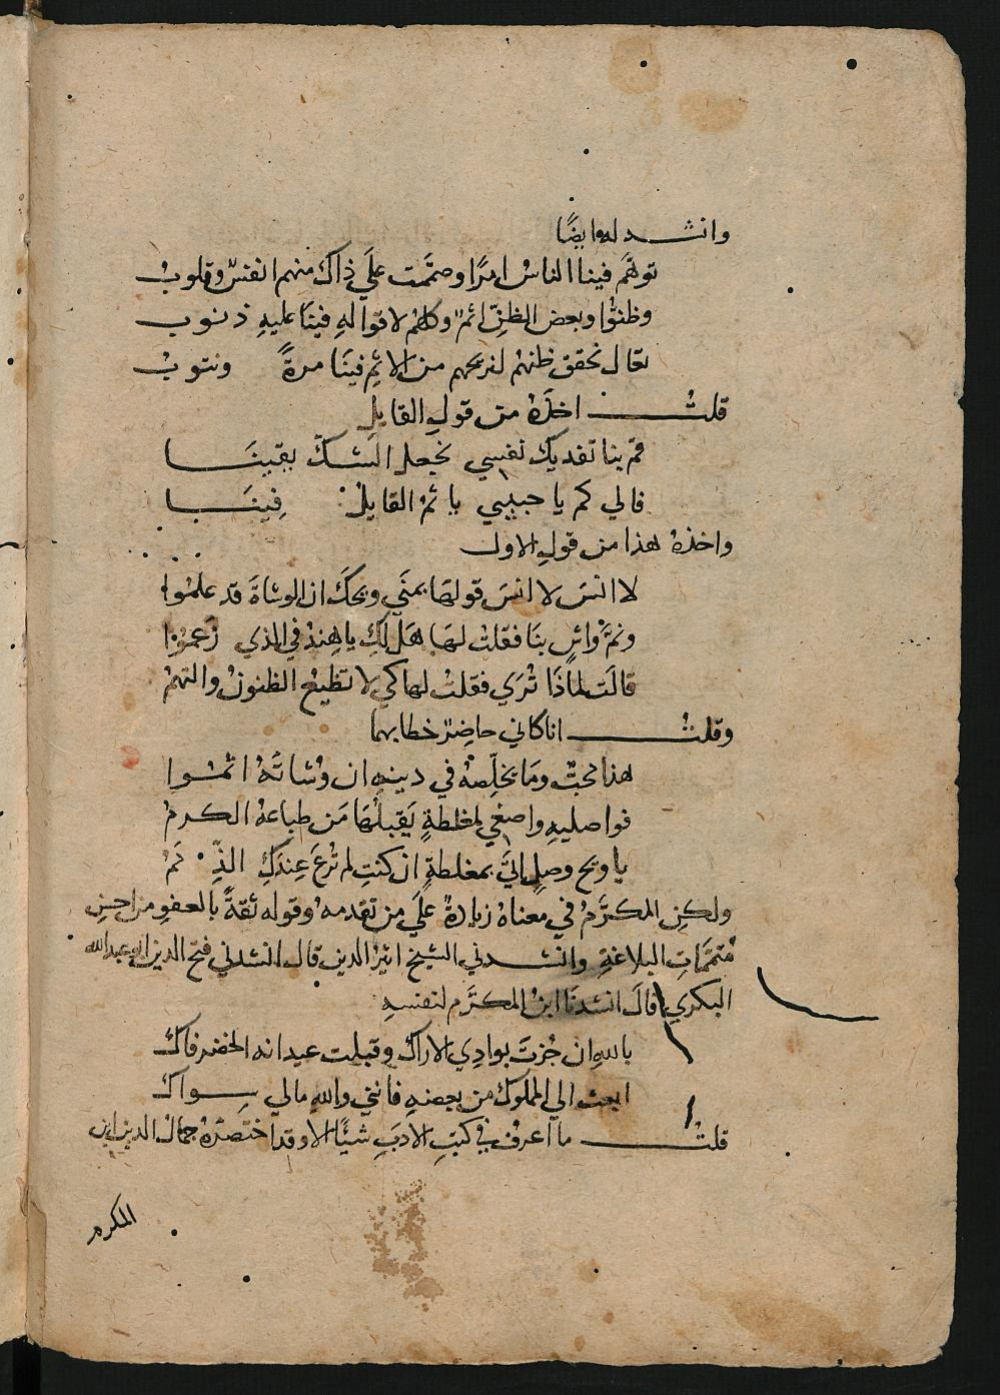 وانشد له ايضًا
توهَّم فينا الناسُ امرًا وصمَّمت علَي ذاكَ منهم انفسٌ وقلوبُ
وظنُّوا وبعض الظنّ اثمٌ وكلهُم لاقوالهِ فينَا عليهِ ذنوبُ
تعال نحقق ظنهُم لنريحهم من الاثمِ فينَا مرةً ونتوبُ
قلتُ اخذَهُ من قولِ القايلِ
قم بنا تفديك نفسي نجعل الشكّ يقينَا
فالي كم يا حبيبي ياثمُ القايلُ فِينَا
واخذهُ هذا من قولِ الاول
لا انسَ لا انسَ قولهَا بمنَي ويحكَ ان الوشاةَ قد علمُوا
ونمَّ واشٍ بنَا فقلتُ لهَا هَل لكِ يا هِندُ في الذي زعمُوا
قالَت لماذَا تُرَي فقلتُ لها كي لا تظيعَ الظنونُ والتهمُ
وقلتُ اناكاني حاضِرٌ خطابهما
هذا محبٌّ ومَا يخلّصهُ في دينهِ ان وُشاتَهُ اثمُوا
فواصليهِ واصغي لمغلطةٍ يَقبلُهَا مَن طباعهُ الكرمُ
يا ويح وصلٍ اتَي بمغلطةٍ ان كنتِ لم تُرعَ عِندَكِ الذِّممُ
ولكنِ المكرَّمُ في معناهُ زيادةٌ علَي من تقدمهُ وقوله ثقةً بالعفوِ من احسنِ
مُتمّمَاتِ البلاغةِ وانشدني الشيخ اثيرُ الدين قال انشدني فتح الدين ابو عبد الله
البكري قالَ انشدنَا ابنُ المكرَّم لنفسهِ
باللهِ ان جُزتَ بوادِي الاراكْ وقبلت عيدانه الخضر فاكْ
ابعث الي المملوكِ من بعضهِ فانني واللهِ مالي سِواكْ
قلتُ ما اعرفُ في كتبِ الادَبِ شيئًا الا وقد اختصرَهُ جمالُ الدين ابن
المكرم